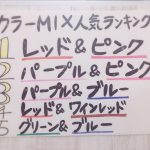 カラーMIX人気ランキング
1 レッド&ピンク
2 パープル&ピンク
3 パープル&ブルー
4 レッド&ワインレッド
5 グリーン&ブルー